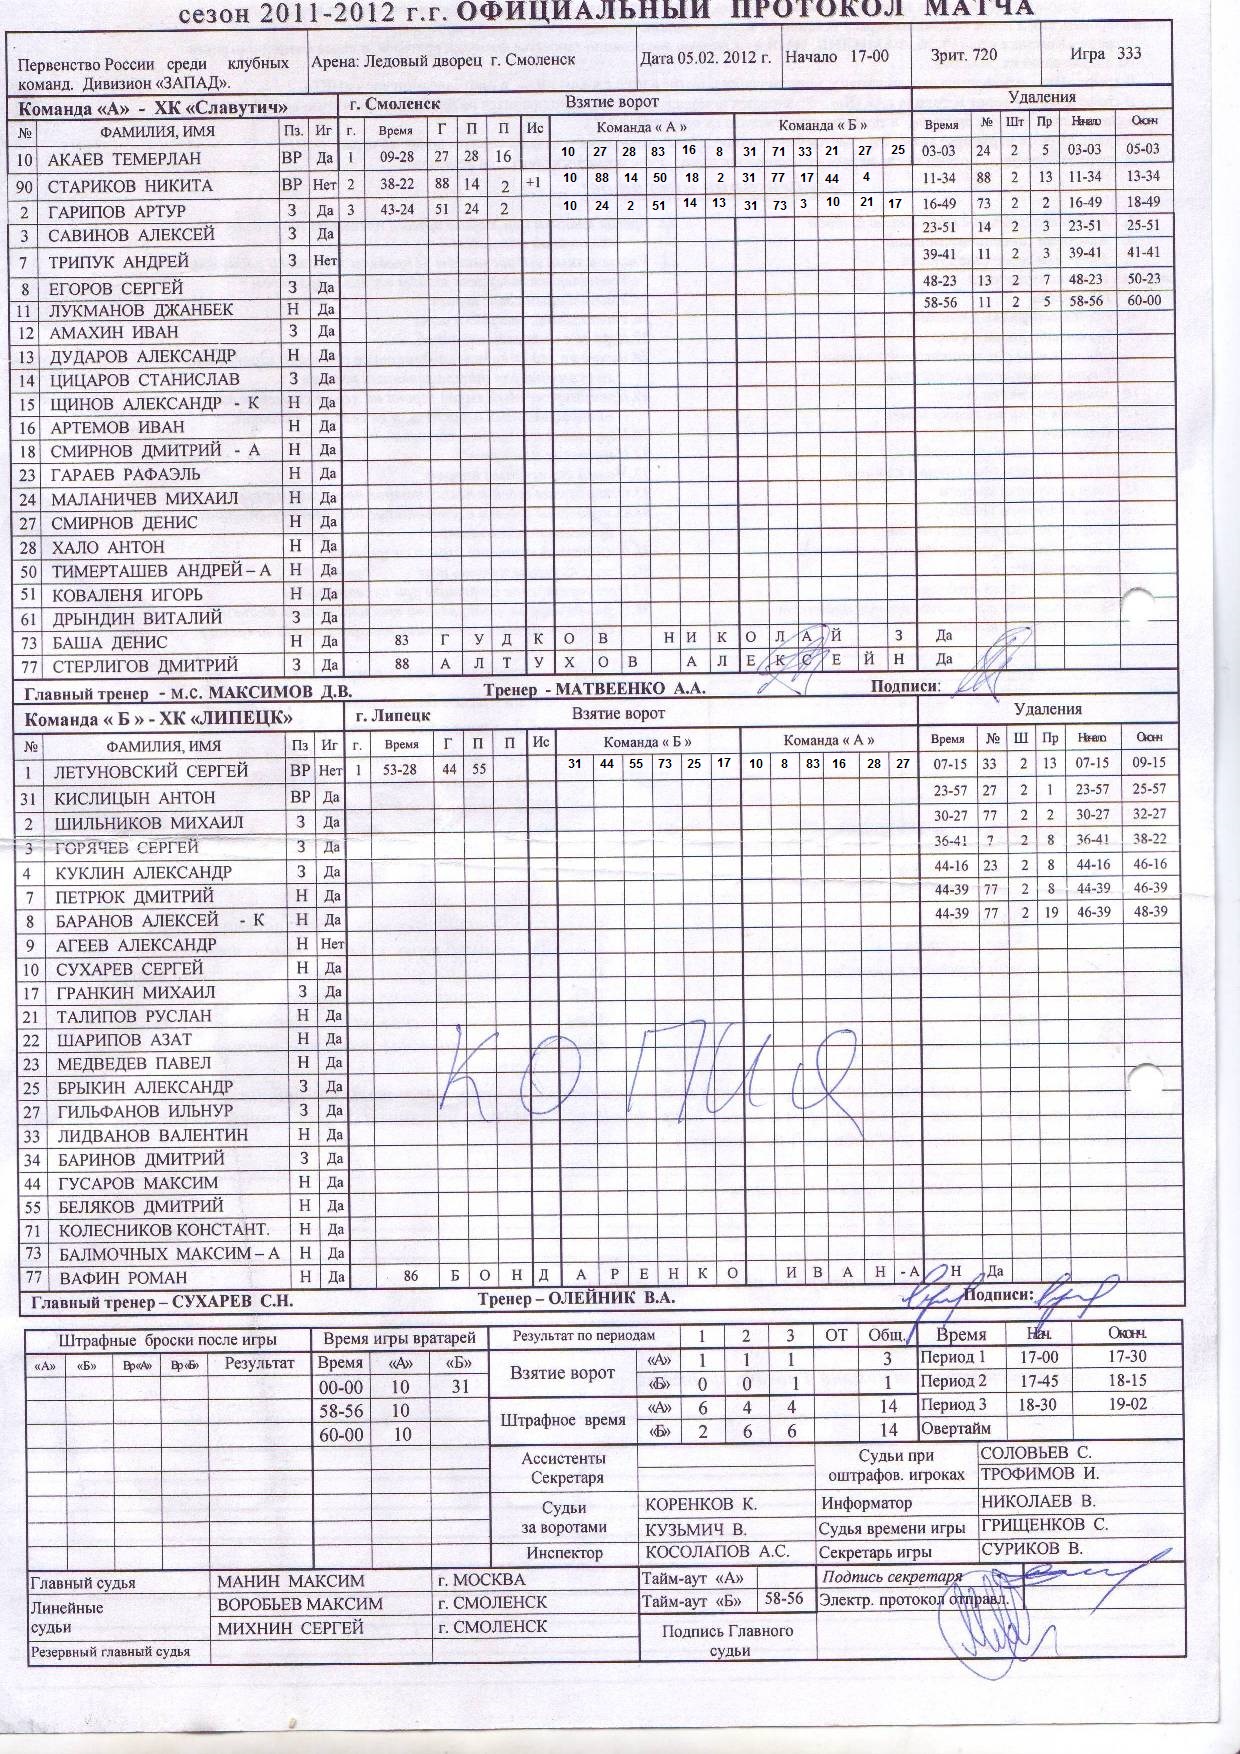 сезон 2011-2012 г.г. ОФИЦИАЛЬНЫЙ ПРОТОКОЛ МАТЧА
Первенство России среди клубных команд. Дивизион «ЗАПАД». Арена: Ледовый дворец г. Смоленск Дата 05.02. 2012 г. Начало 17-00 Зрит. 720 Игра 333
Команда «А» - ХК «Славутич» г. Смоленск Взятие ворот Удаления
№ ФАМИЛИЯ, ИМЯ Пз. Иг г. Время Г П П Ис Команда « А » Команда « Б » Время № Шт Пр Начало Оконч
10 АКАЕВ ТЕМЕРЛАН ВР Да 1 09-28 27 28 16 10 27 28 83 16 8 31 71 33 21 27 25 03-03 24 2 5 03-03 05-03
90 СТАРИКОВ НИКИТА ВР Нет 2 38-22 88 14 2 +1 10 88 14 50 18 2 31 77 17 44 4 11-34 88 2 13 11-34 13-34
2 ГАРИПОВ АРТУР З Да 3 43-24 51 24 2 10 24 2 51 14 13 31 73 3 10 21 17 16-49 73 2 2 16-49 18-49
3 САВИНОВ АЛЕКСЕЙ З Да 23-51 14 2 3 23-51 25-51
7 ТРИПУК АНДРЕЙ З Нет 39-41 11 2 3 39-41 41-41
8 ЕГОРОВ СЕРГЕЙ З Да 48-23 13 2 7 48-23 50-23
11 ЛУКМАНОВ ДЖАНБЕК Н Да 58-56 11 2 5 58-56 60-00
12 АМАХИН ИВАН З Да
13 ДУДАРОВ АЛЕКСАНДР Н Да
14 ЦИЦАРОВ СТАНИСЛАВ З Да
15 ЩИНОВ АЛЕКСАНДР - К Н Да
16 АРТЕМОВ ИВАН Н Да
18 СМИРНОВ ДМИТРИЙ - А Н Да
23 ГАРАЕВ РАФАЭЛЬ Н Да
24 МАЛАНИЧЕВ МИХАИЛ Н Да
27 СМИРНОВ ДЕНИС Н Да
28 ХАЛО АНТОН Н Да
50 ТИМЕРТАШЕВ АНДРЕЙ – А Н Да
51 КОВАЛЕНЯ ИГОРЬ Н Да
61 ДРЫНДИН ВИТАЛИЙ З Да
73 БАША ДЕНИС Н Да 83 Г У Д К О В Н И К О Л А Й З Да
77 СТЕРЛИГОВ ДМИТРИЙ З Да 88 А Л Т У Х О В А Л Е К С Е Й Н Да
Главный тренер - м.с. МАКСИМОВ Д.В. Тренер - МАТВЕЕНКО А.А. Подписи:
Команда « Б » - ХК «ЛИПЕЦК» г. Липецк Взятие ворот Удаления
№ ФАМИЛИЯ, ИМЯ Пз Иг г. Время Г П П Ис Команда « Б » Команда « А » Время № Ш Пр Начало Оконч
1 ЛЕТУНОВСКИЙ СЕРГЕЙ ВР Нет 1 53-28 44 55 31 44 55 73 25 17 10 8 83 16 28 27 07-15 33 2 13 07-15 09-15
31 КИСЛИЦЫН АНТОН ВР Да 23-57 27 2 1 23-57 25-57
2 ШИЛЬНИКОВ МИХАИЛ З Да 30-27 77 2 2 30-27 32-27
3 ГОРЯЧЕВ СЕРГЕЙ З Да 36-41 7 2 8 36-41 38-22
4 КУКЛИН АЛЕКСАНДР З Да 44-16 23 2 8 44-16 46-16
7 ПЕТРЮК ДМИТРИЙ Н Да 44-39 77 2 8 44-39 46-39
8 БАРАНОВ АЛЕКСЕЙ - К Н Да 44-39 77 2 19 46-39 48-39
9 АГЕЕВ АЛЕКСАНДР Н Нет
10 СУХАРЕВ СЕРГЕЙ Н Да
17 ГРАНКИН МИХАИЛ З Да
21 ТАЛИПОВ РУСЛАН Н Да
22 ШАРИПОВ АЗАТ Н Да
23 МЕДВЕДЕВ ПАВЕЛ Н Да
КОПИЯ
25 БРЫКИН АЛЕКСАНДР З Да
27 ГИЛЬФАНОВ ИЛЬНУР З Да
33 ЛИДВАНОВ ВАЛЕНТИН Н Да
34 БАРИНОВ ДМИТРИЙ З Да
44 ГУСАРОВ МАКСИМ Н Да
55 БЕЛЯКОВ ДМИТРИЙ Н Да
71 КОЛЕСНИКОВ КОНСТАНТ. Н Да
73 БАЛМОЧНЫХ МАКСИМ – А Н Да
77 ВАФИН РОМАН Н Да 86 Б О Н Д А Р Е Н К О И В А Н - А Н Да
Главный тренер – СУХАРЕВ С.Н. Тренер – ОЛЕЙНИК В.А. Подписи:
Штрафные броски после игры Время игры вратарей Результат по периодам 1 2 3 ОТ Общ. Время Нач. Оконч.
«А» «Б» Вр«А» Вр«Б» Результат Время «А» «Б» Взятие ворот «А» 1 1 1 3 Период 1 17-00 17-30
00-00 10 31 «Б» 0 0 1 1 Период 2 17-45 18-15
58-56 10 Штрафное время «А» 6 4 4 14 Период 3 18-30 19-02
60-00 10 «Б» 2 6 6 14 Овертайм
Ассистенты Секретаря Судьи при оштрафов. игроках СОЛОВЬЕВ С.
ТРОФИМОВ И.
Судьи за воротами КОРЕНКОВ К. Информатор НИКОЛАЕВ В.
КУЗЬМИЧ В. Судья времени игры ГРИЩЕНКОВ С.
Инспектор КОСОЛАПОВ А.С. Секретарь игры СУРИКОВ В.
Главный судья МАНИН МАКСИМ г. МОСКВА Тайм-аут «А» Подпись секретаря
Линейные судьи ВОРОБЬЕВ МАКСИМ г. СМОЛЕНСК Тайм-аут «Б» 58-56 Электр. протокол отправл.
МИХНИН СЕРГЕЙ г. СМОЛЕНСК Подпись Главного судьи
Резервный главный судья